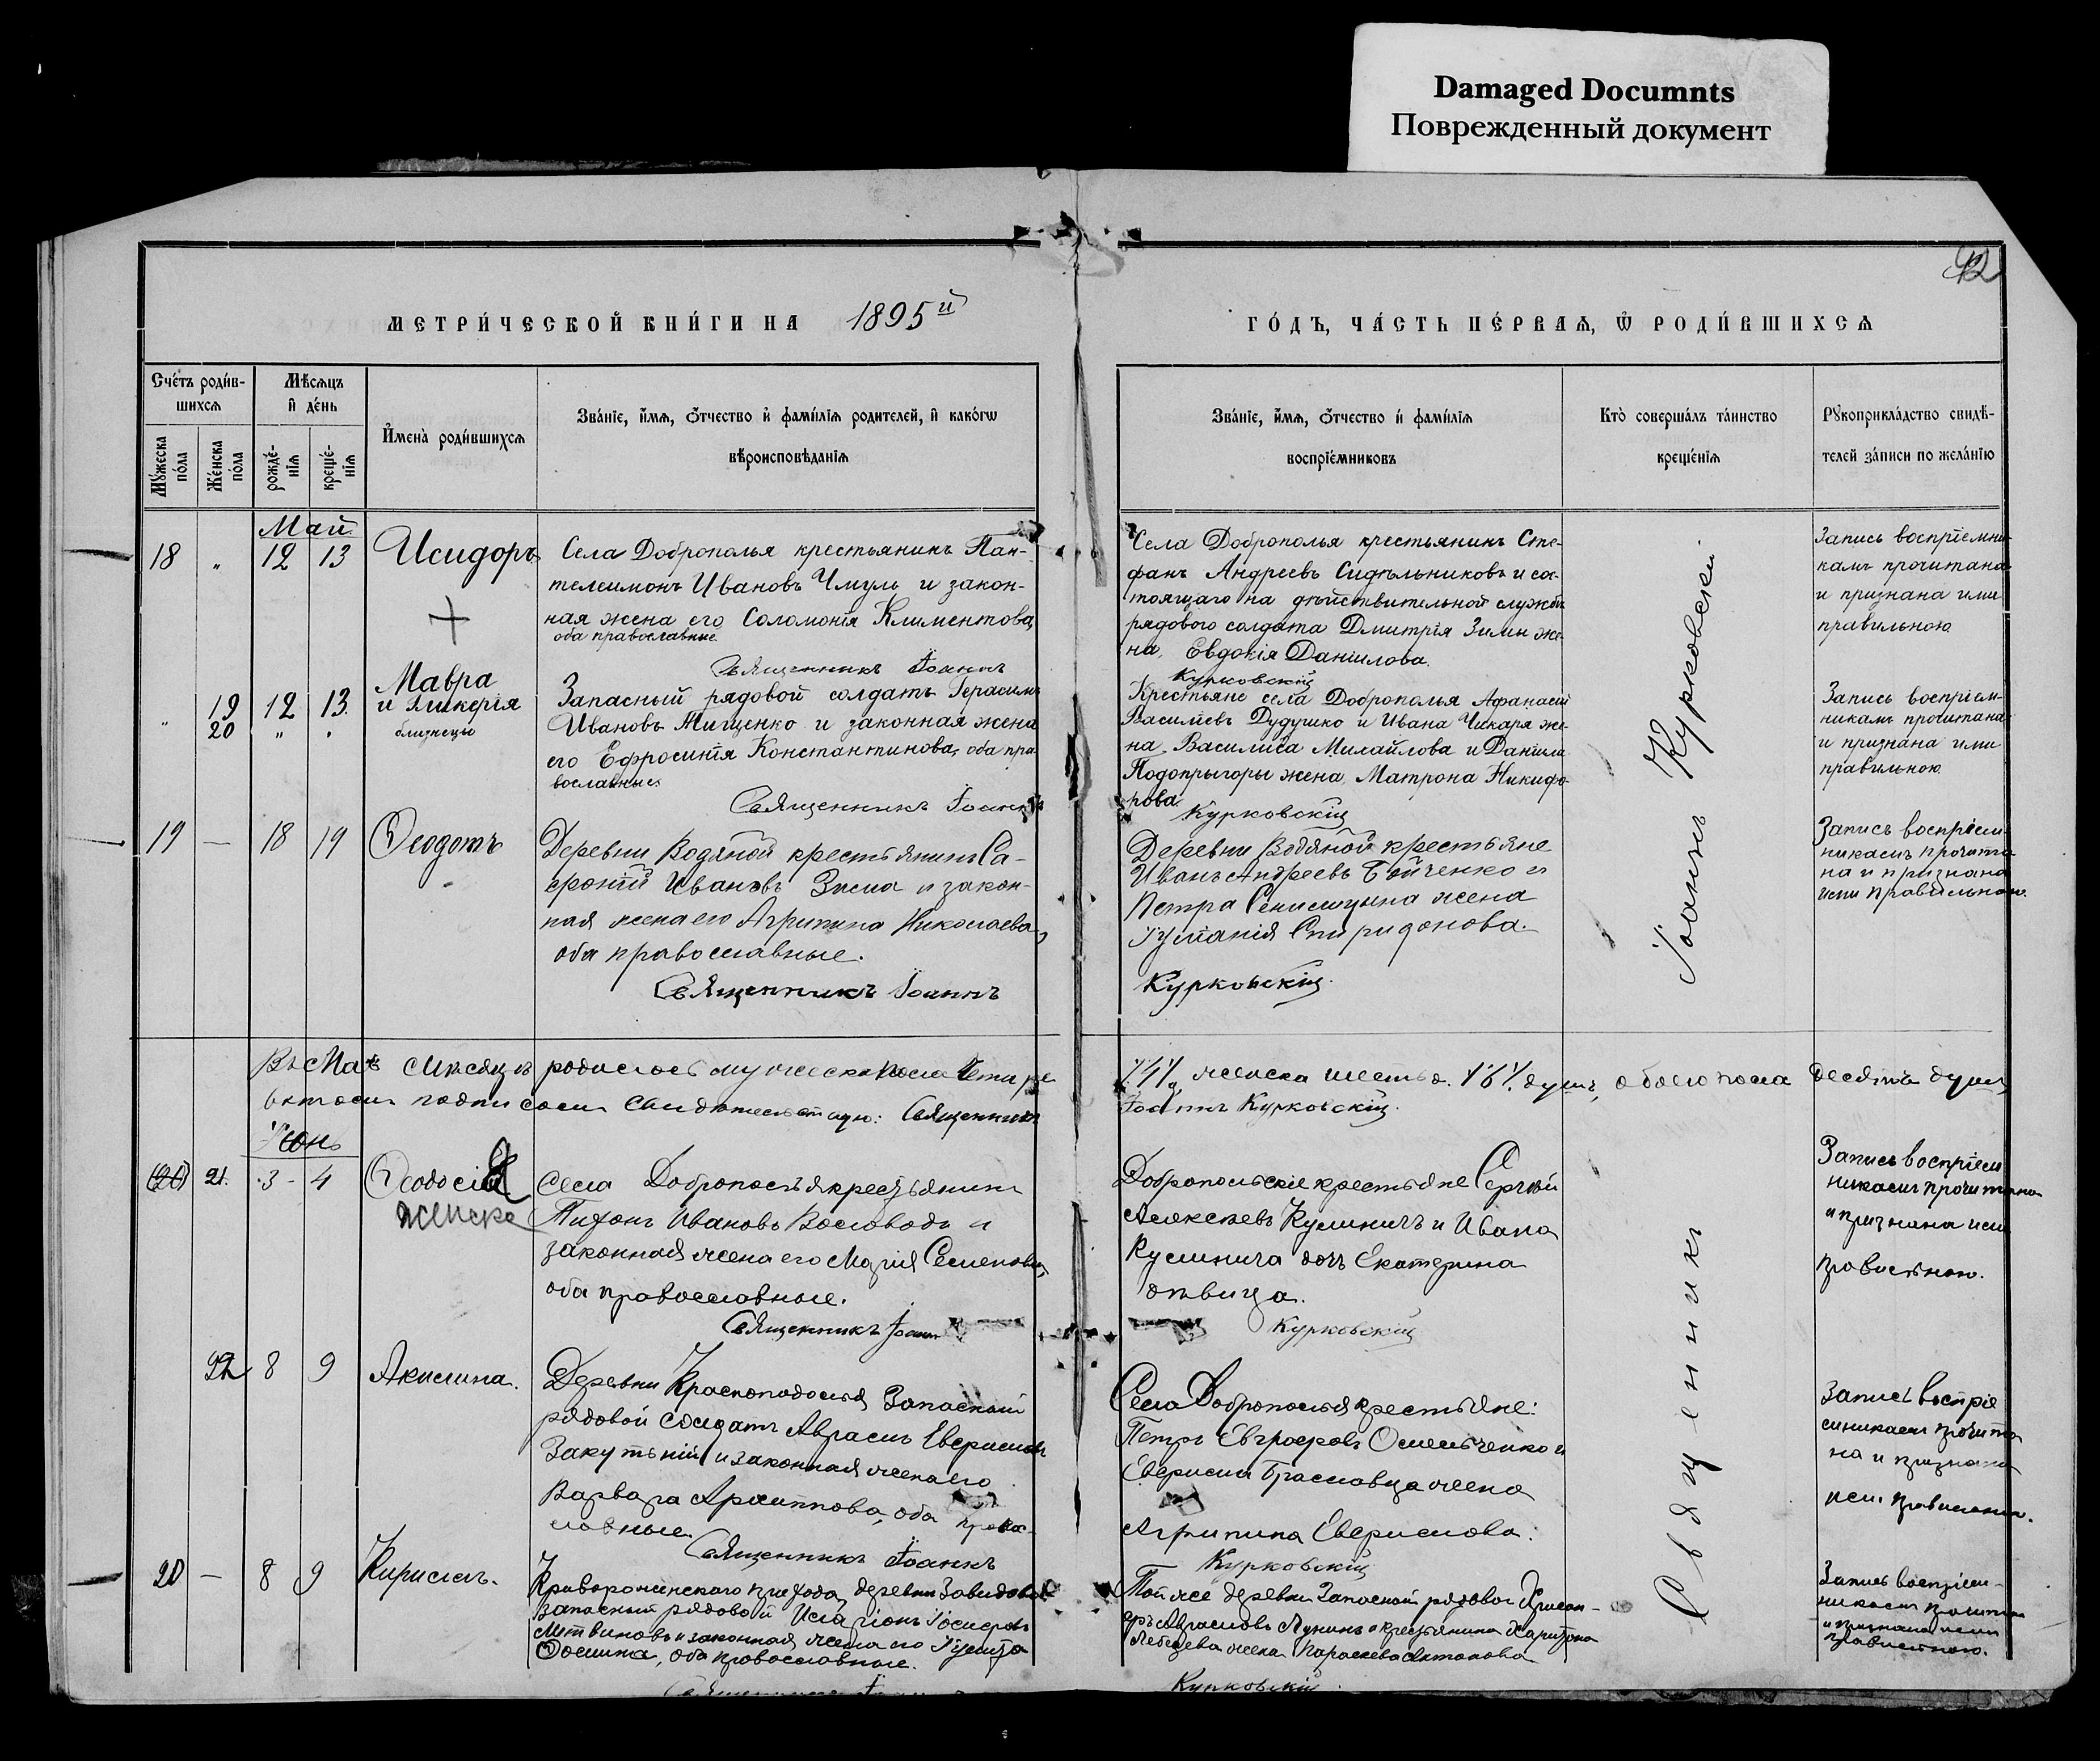 Damaged Documnts
Поврежденный документ
42
МЕТРИ́ЧЕСКОЙ КНИ́ГИ НА 1895й
ГО́ДЪ, ЧА́СТЬ ПЕ́РВАѦ, Ѿ РОДИ́ВШИХСѦ
Сче́тъ роди́в-
шихсѧ
Мꙋ́жеска по́ла
Же́нска по́ла
Мѣ́сѧцъ
и҆ де́нь
рожде́-
нїѧ
креще́-
нїѧ
И҆мена̀ роди́вшихсѧ
Зва́нїе, и҆́мѧ, ѻ҆́тчество и҆ фами́лїѧ родителей, и҆ како́гѡ
вѣроисповѣ́данїѧ
Зва́нїе, и҆́мѧ, ѻ҆́тчество и҆ фами́лїѧ
воспрїе́мниковъ
Кто̀ соверша́лъ та́инство
креще́нїѧ
Рꙋкоприкла́дство свидѣ́-
телей за́писи по жела́нїю
Май
18 „ 12 13 Исидоръ
Села Доброполья крестьянинъ Пан-
телеимонъ Ивановъ Чмуль и закон-
ная жена его Соломонія Климентова,
оба православные
Священникъ Іоаннъ
Села Доброполья крестьянинъ Сте-
фанъ Андреевъ Сидѣльниковъ и со-
тоящаго на дѣйствительной службѣ
рядового солдата Дмитрія Зимы же-
на, Евдокія Даніилова.
Курковскій
Запись воспріемни-
камъ прочитана
и признана ими
правильною
„ 19 12 13. Мавра
20 „ „ и Гликерія
близнецы
Запасный рядовой солдатъ Герасимъ
Ивановъ Тищенко и законная жена
его Ефросинія Константинова, оба пра-
вославные.
Священникъ Іоаннъ
Крестьяне села Доброполья Афанасій
Василіевъ Дудушко и Ивана Чикаря же-
на, Василиса Михайлова и Даніила
Подопрыгоры жена, Матрона Никифо-
рова.
Курковскій
Запись воспріем-
никамъ прочитана
и признана ими
правильною.
19 — 18 19 Ѳеодотъ
Деревни Водяной крестьянинъ Са-
фроній Ивановъ Зима и закон-
ная жена его Агрипина Николаева,
оба православные.
Священникъ Іоаннъ
Деревни Водяной крестьяне
Иванъ Андреевъ Бойченко и
Петра жена
Іуліанія Спиридонова.
Курковскій.
Запись воспріем-
никамъ прочита-
на и признана
ими правильною.
Священникъ Іоаннъ Курковскій.
Въ Маѣ мѣсяцѣ родилось мужеска пола четыре
/4/, женска шесть /6/ душъ, обоего пола десять душъ,
въ чемъ подписомъ свидѣтельствую: Священникъ
Іоаннъ Курковскій.
Іюнь
(20) 21. 3 - 4 Ѳеодосія
женска
Села Доброполья крестьянинъ
Тихонъ Ивановъ Воловодъ и
законная жена его Марія Семенова,
оба православные.
Священникъ Іоаннъ
Добропольскіе крестьяне Сергѣй
Алексѣевъ Куликичъ и Ивана
Куликича дочь Екатерина
дѣвица.
Курковскій
Запись воспріем-
никамъ прочитана
и признана ими
правильною.
22 8 9 Акилина.
Деревни Красноподолья Запасный
рядовой солдатъ Аврамъ
и законная жена его
Варвара Архиппова, оба право-
славные.
Священникъ Іоаннъ
Села Доброполья крестьяне:
Петръ Омельченко и
жена
Агрипина
Курковскій
Запись воспріе-
мникамъ прочита-
на и признана
ими правильною.
20 — 8 9 Кириллъ.
Криворожскаго прихода, деревни Завидова
запасный рядовой Иларіонъ
Литвиновъ и законная жена его Іулита
Ѳомина, оба православные.
Священникъ Іоаннъ
Той же деревни Запасный рядовой
Аврамовъ Лунинъ и крестьянина Харитона
Лебедева жена Параскева Антонова
Курковскій
Запись воспріем-
никамъ прочитана
и признана ими
правильною.